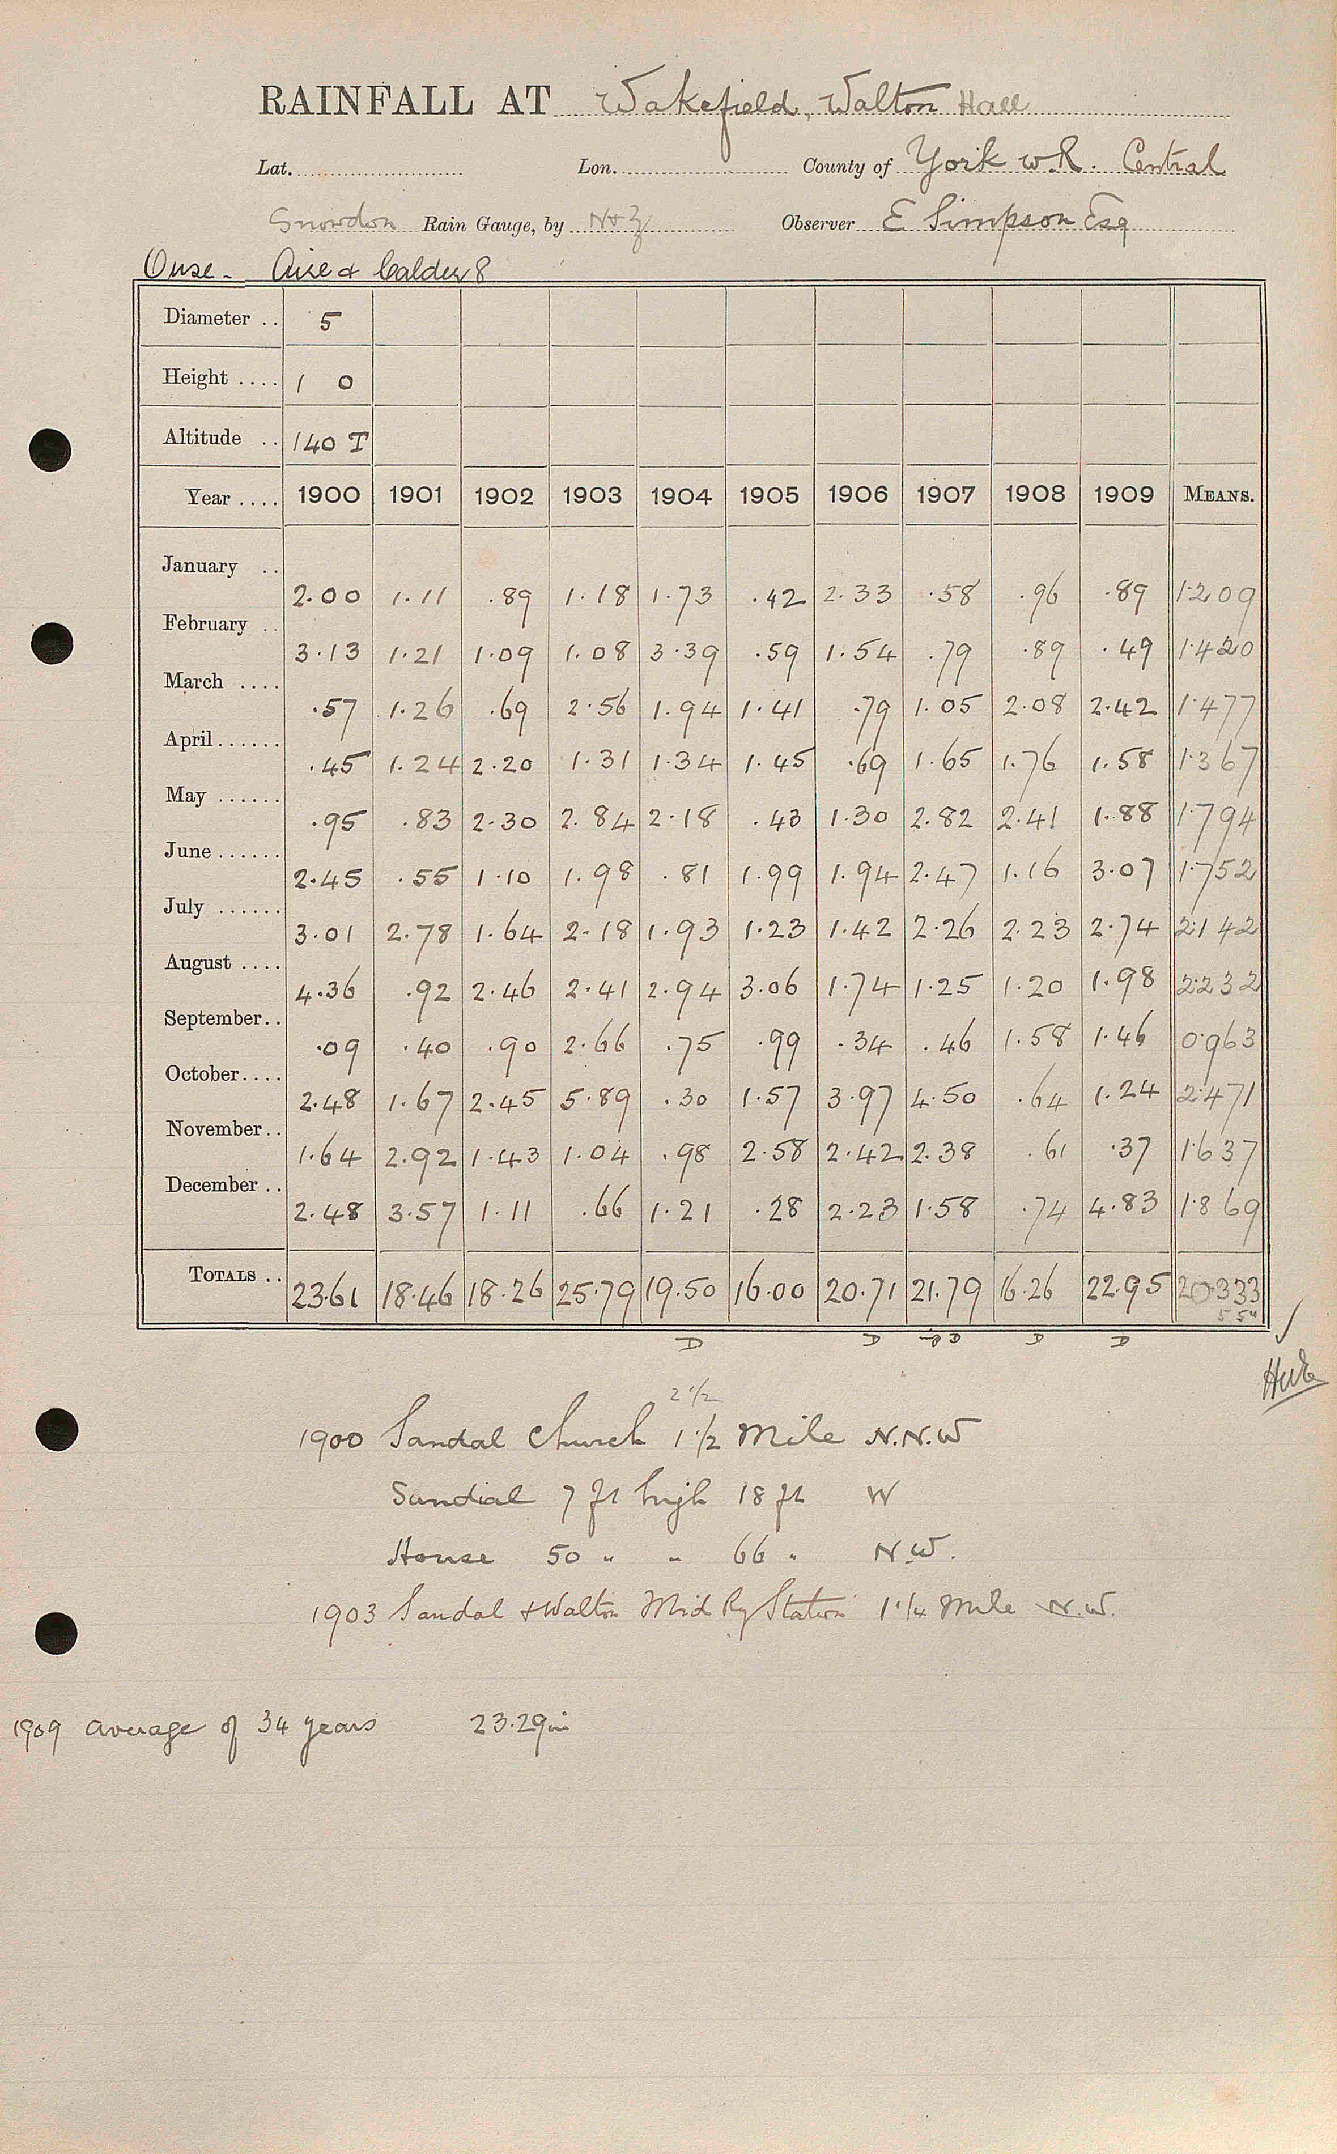 RAINFALL AT Wakefield, Walton Hall
Lat. Lon. County of York W.R. Central
Snowdon Rain Gauge, by N&Z Observer E Simpson Esq
Ouse - Aire & Calder 8
Diameter .. 5
Height .... 1 0
Altitude .. 140 T
Year .... 1900 1901 1902 1903 1904 1905 1906 1907 1908 1909 MEANS.
January .. 2.00 1.11 .89 1.18 1.73 .42 2.33 .58 .96 .89 1.209
February .. 3.13 1.21 1.09 1.08 3.39 .59 1.54 .79 .89 .49 1.420
March .... .57 1.26 .69 2.56 1.94 1.41 .79 1.05 2.08 2.42 1.477
April ...... .45 1.24 2.20 1.31 1.34 1.45 .69 1.65 1.76 1.58 1.367
May ...... .95 .83 2.30 2.84 2.18 .43 1.30 2.82 2.41 1.88 1.794
June ...... 2.45 .55 1.10 1.98 .81 1.99 1.94 2.47 1.16 3.07 1.752
July ...... 3.01 2.78 1.64 2.18 1.93 1.23 1.42 2.26 2.23 2.74 2.142
August .... 4.36 .92 2.46 2.41 2.94 3.06 1.74 1.25 1.20 1.98 2.232
September .. .09 .40 .90 2.66 .75 .99 .34 .46 1.58 1.46 0.963
October .... 2.48 1.67 2.45 5.89 .30 1.57 3.97 4.50 .64 1.24 2.471
November .. 1.64 2.92 1.43 1.04 .98 2.58 2.42 2.38 .61 .37 1.637
December .. 2.48 3.57 1.11 .66 1.21 .28 2.23 1.58 .74 4.83 1.869
TOTALS .. 23.61 18.46 18.26 25.79 19.50 16.00 20.71 21.79 16.26 22.95 20.333
D D D D D
2 1/2
1900 Sandal Church 1 1/2 Mile N.N.W
Sundial 7 ft high 18 ft W
House 50 " " 66 " N.W.
1903 Sandal & Walton Mid Ry Station 1 1/4 Mile N.W.
1909 average of 34 years 23.29in